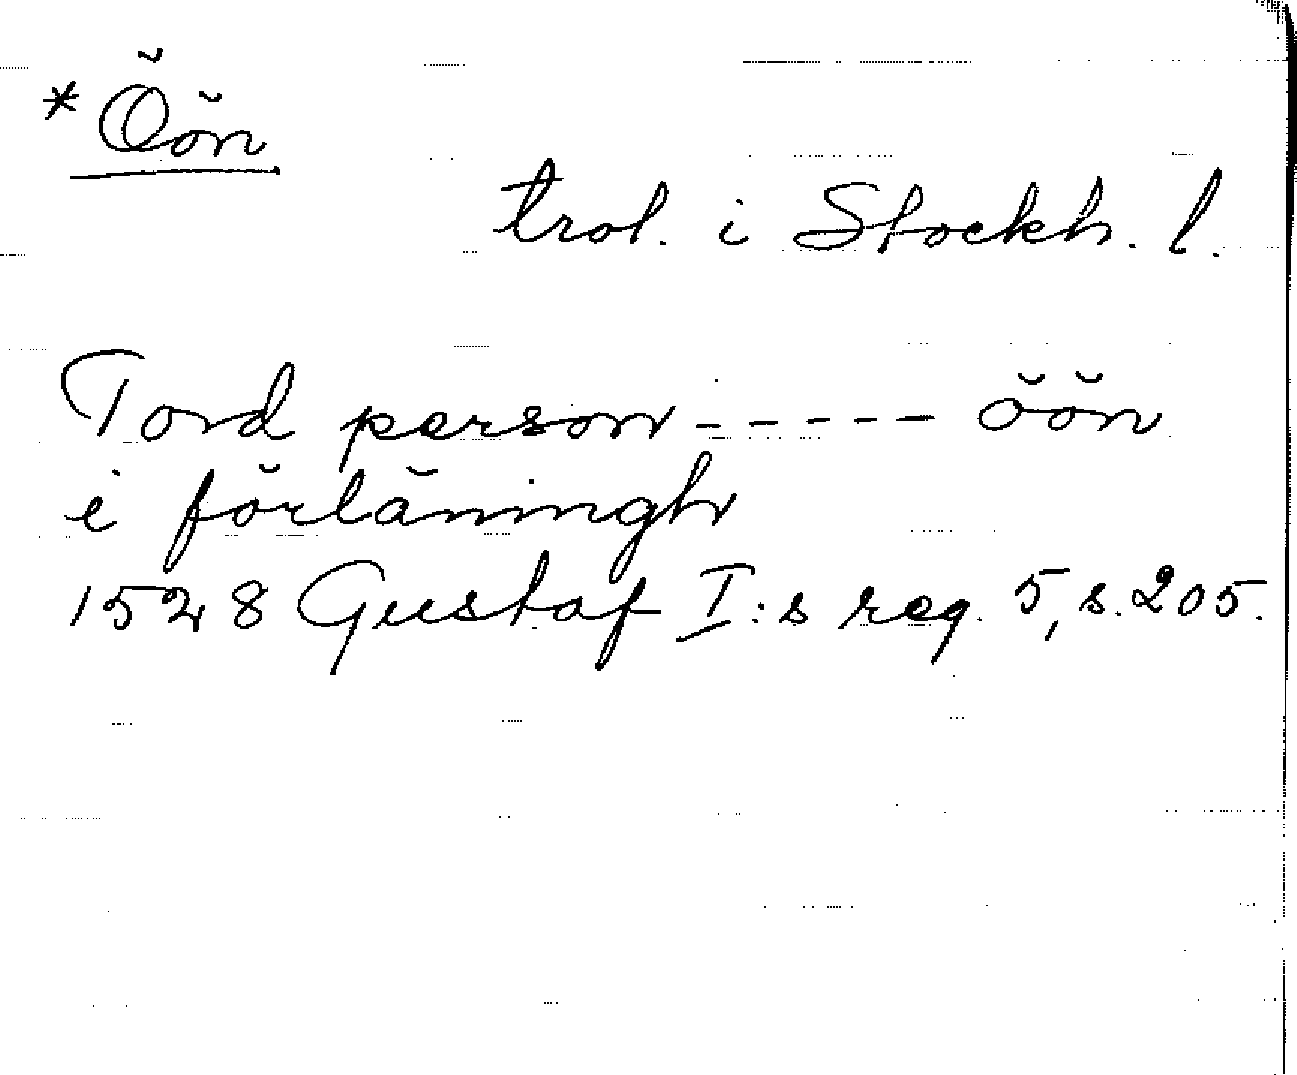 *Öön
trol. i Stockh. l.
Tord person ----- öön
i förläningh
1528 Gustaf I:s reg. 5, s. 205.